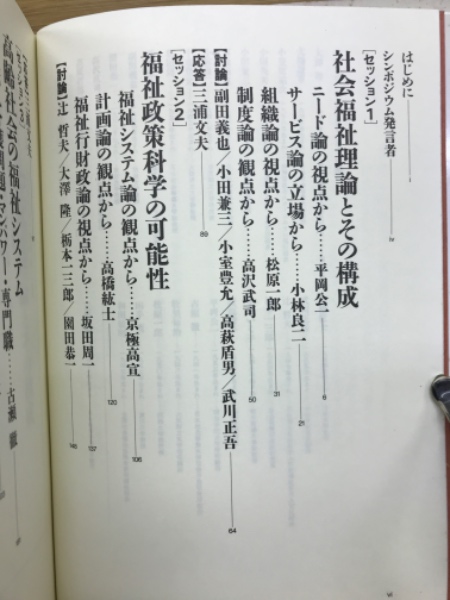 はじめに
シンポジウム発言者 iv
[セッション1]
社会福祉理論とその構成
ニード論の視点から……平岡公一 6
サービス論の立場から……小林良二 21
組織論の視点から……松原一郎 31
制度論の観点から……高沢武司 50
【討論】副田義也／小田兼三／小室豊允／高萩盾男／武川正吾 64
【応答】三浦文夫 89
[セッション2]
福祉政策科学の可能性
福祉システム論の観点から……京極高宣 106
計画論の観点から……高橋紘士 120
福祉行財政論の視点から……坂田周一 137
【討論】辻 哲夫／大澤 隆／栃本一三郎／園田恭一 146
[セッション3]
高齢社会の福祉システム
マンパワー・専門職……古瀬 徹